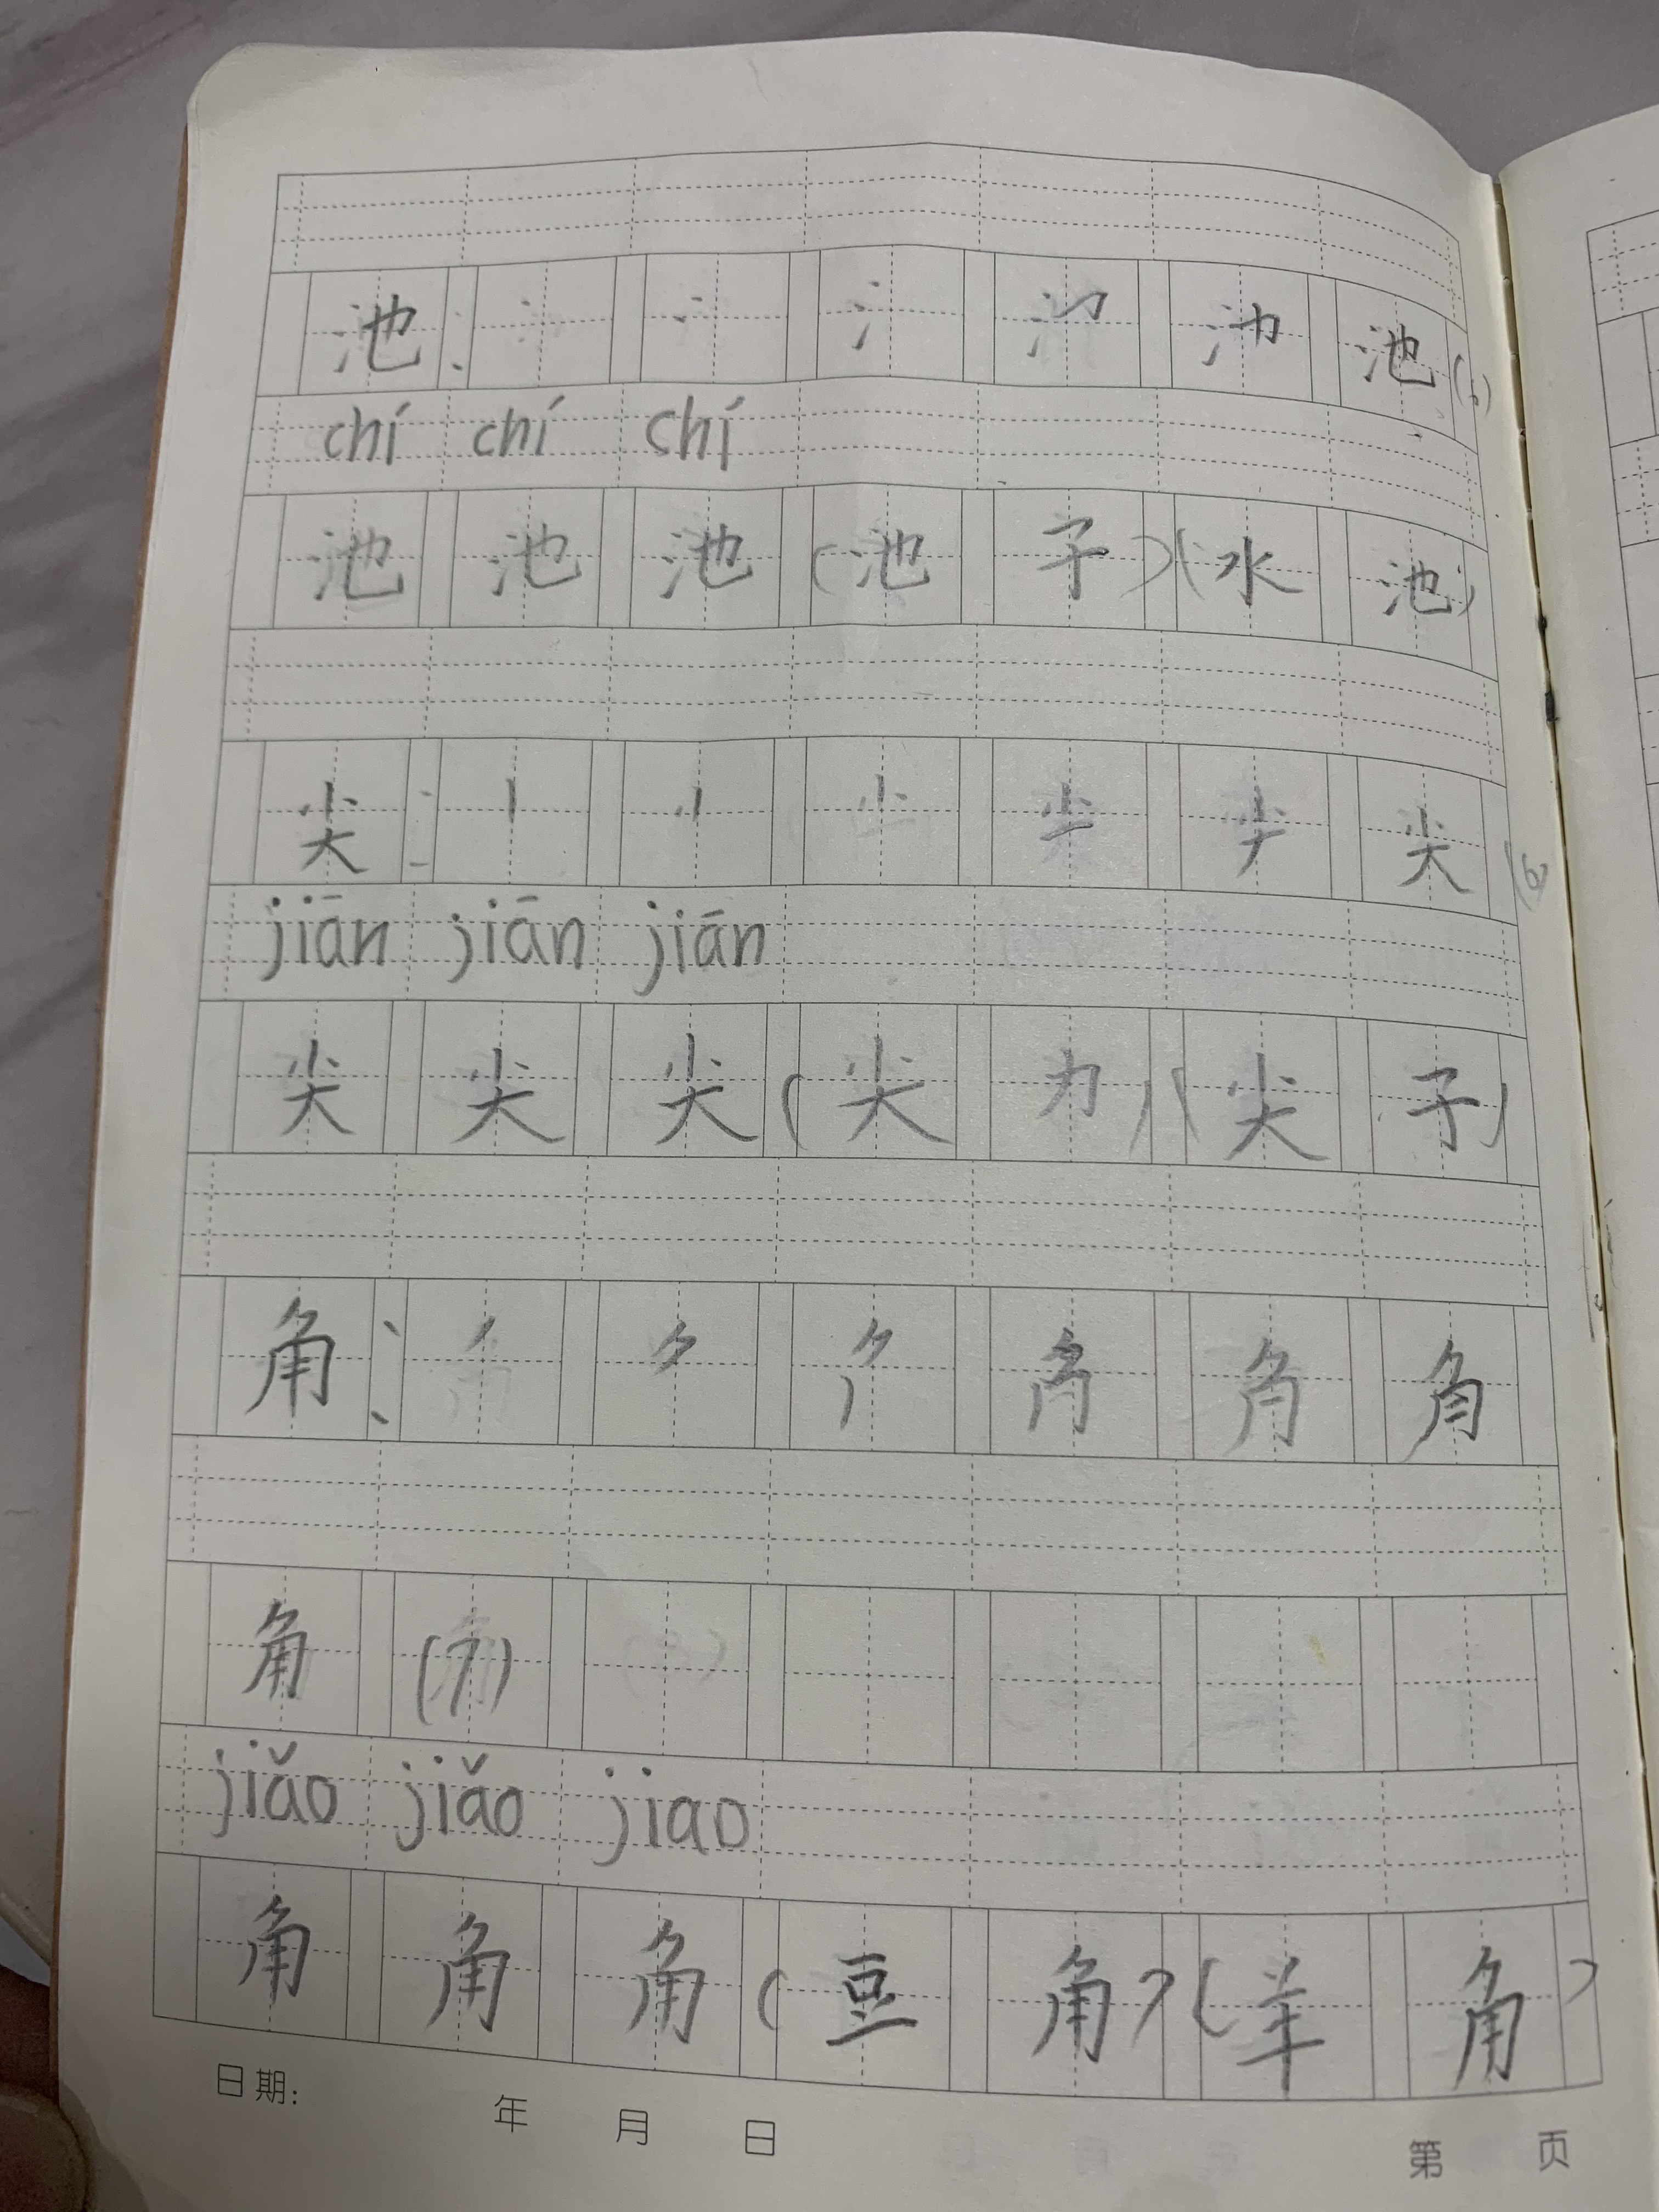 池: 丶 冫 氵 池 (6)
chí chí chí
池 池 池 (池 子) (水 池)
尖: 丨 小 尖 (6)
jiān jiān jiān
尖 尖 尖 (尖 力) (尖 子)
角: 丿 ⺈ 角
角 (7)
jiǎo jiǎo jiao
角 角 角 (豆 角) (羊 角)
日期: 年 月 日 第 页